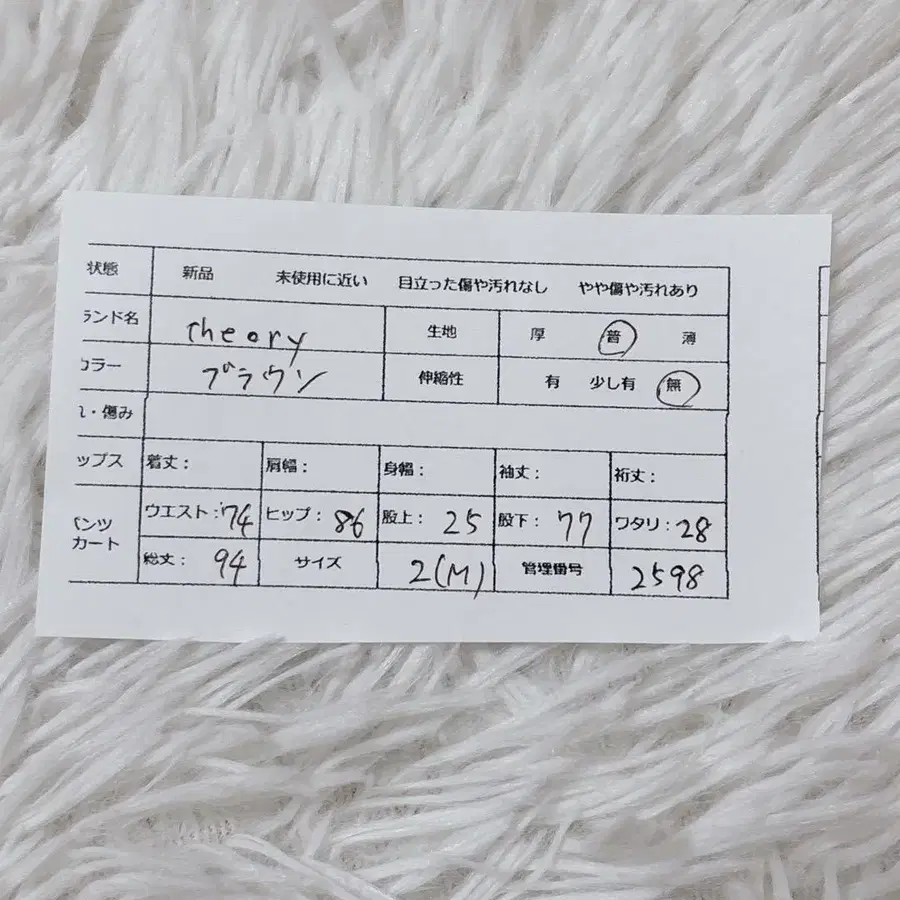 状態 新品 未使用に近い 目立った傷や汚れなし やや傷や汚れあり
ランド名 theory 生地 厚 普 薄
カラー ブラウン 伸縮性 有 少し有 無
・傷み
ップス 着丈： 肩幅： 身幅： 袖丈： 裄丈：
パンツ ウエスト：74 ヒップ：86 股上：25 股下：77 ワタリ：28
カート 総丈：94 サイズ 2(M) 管理番号 2598